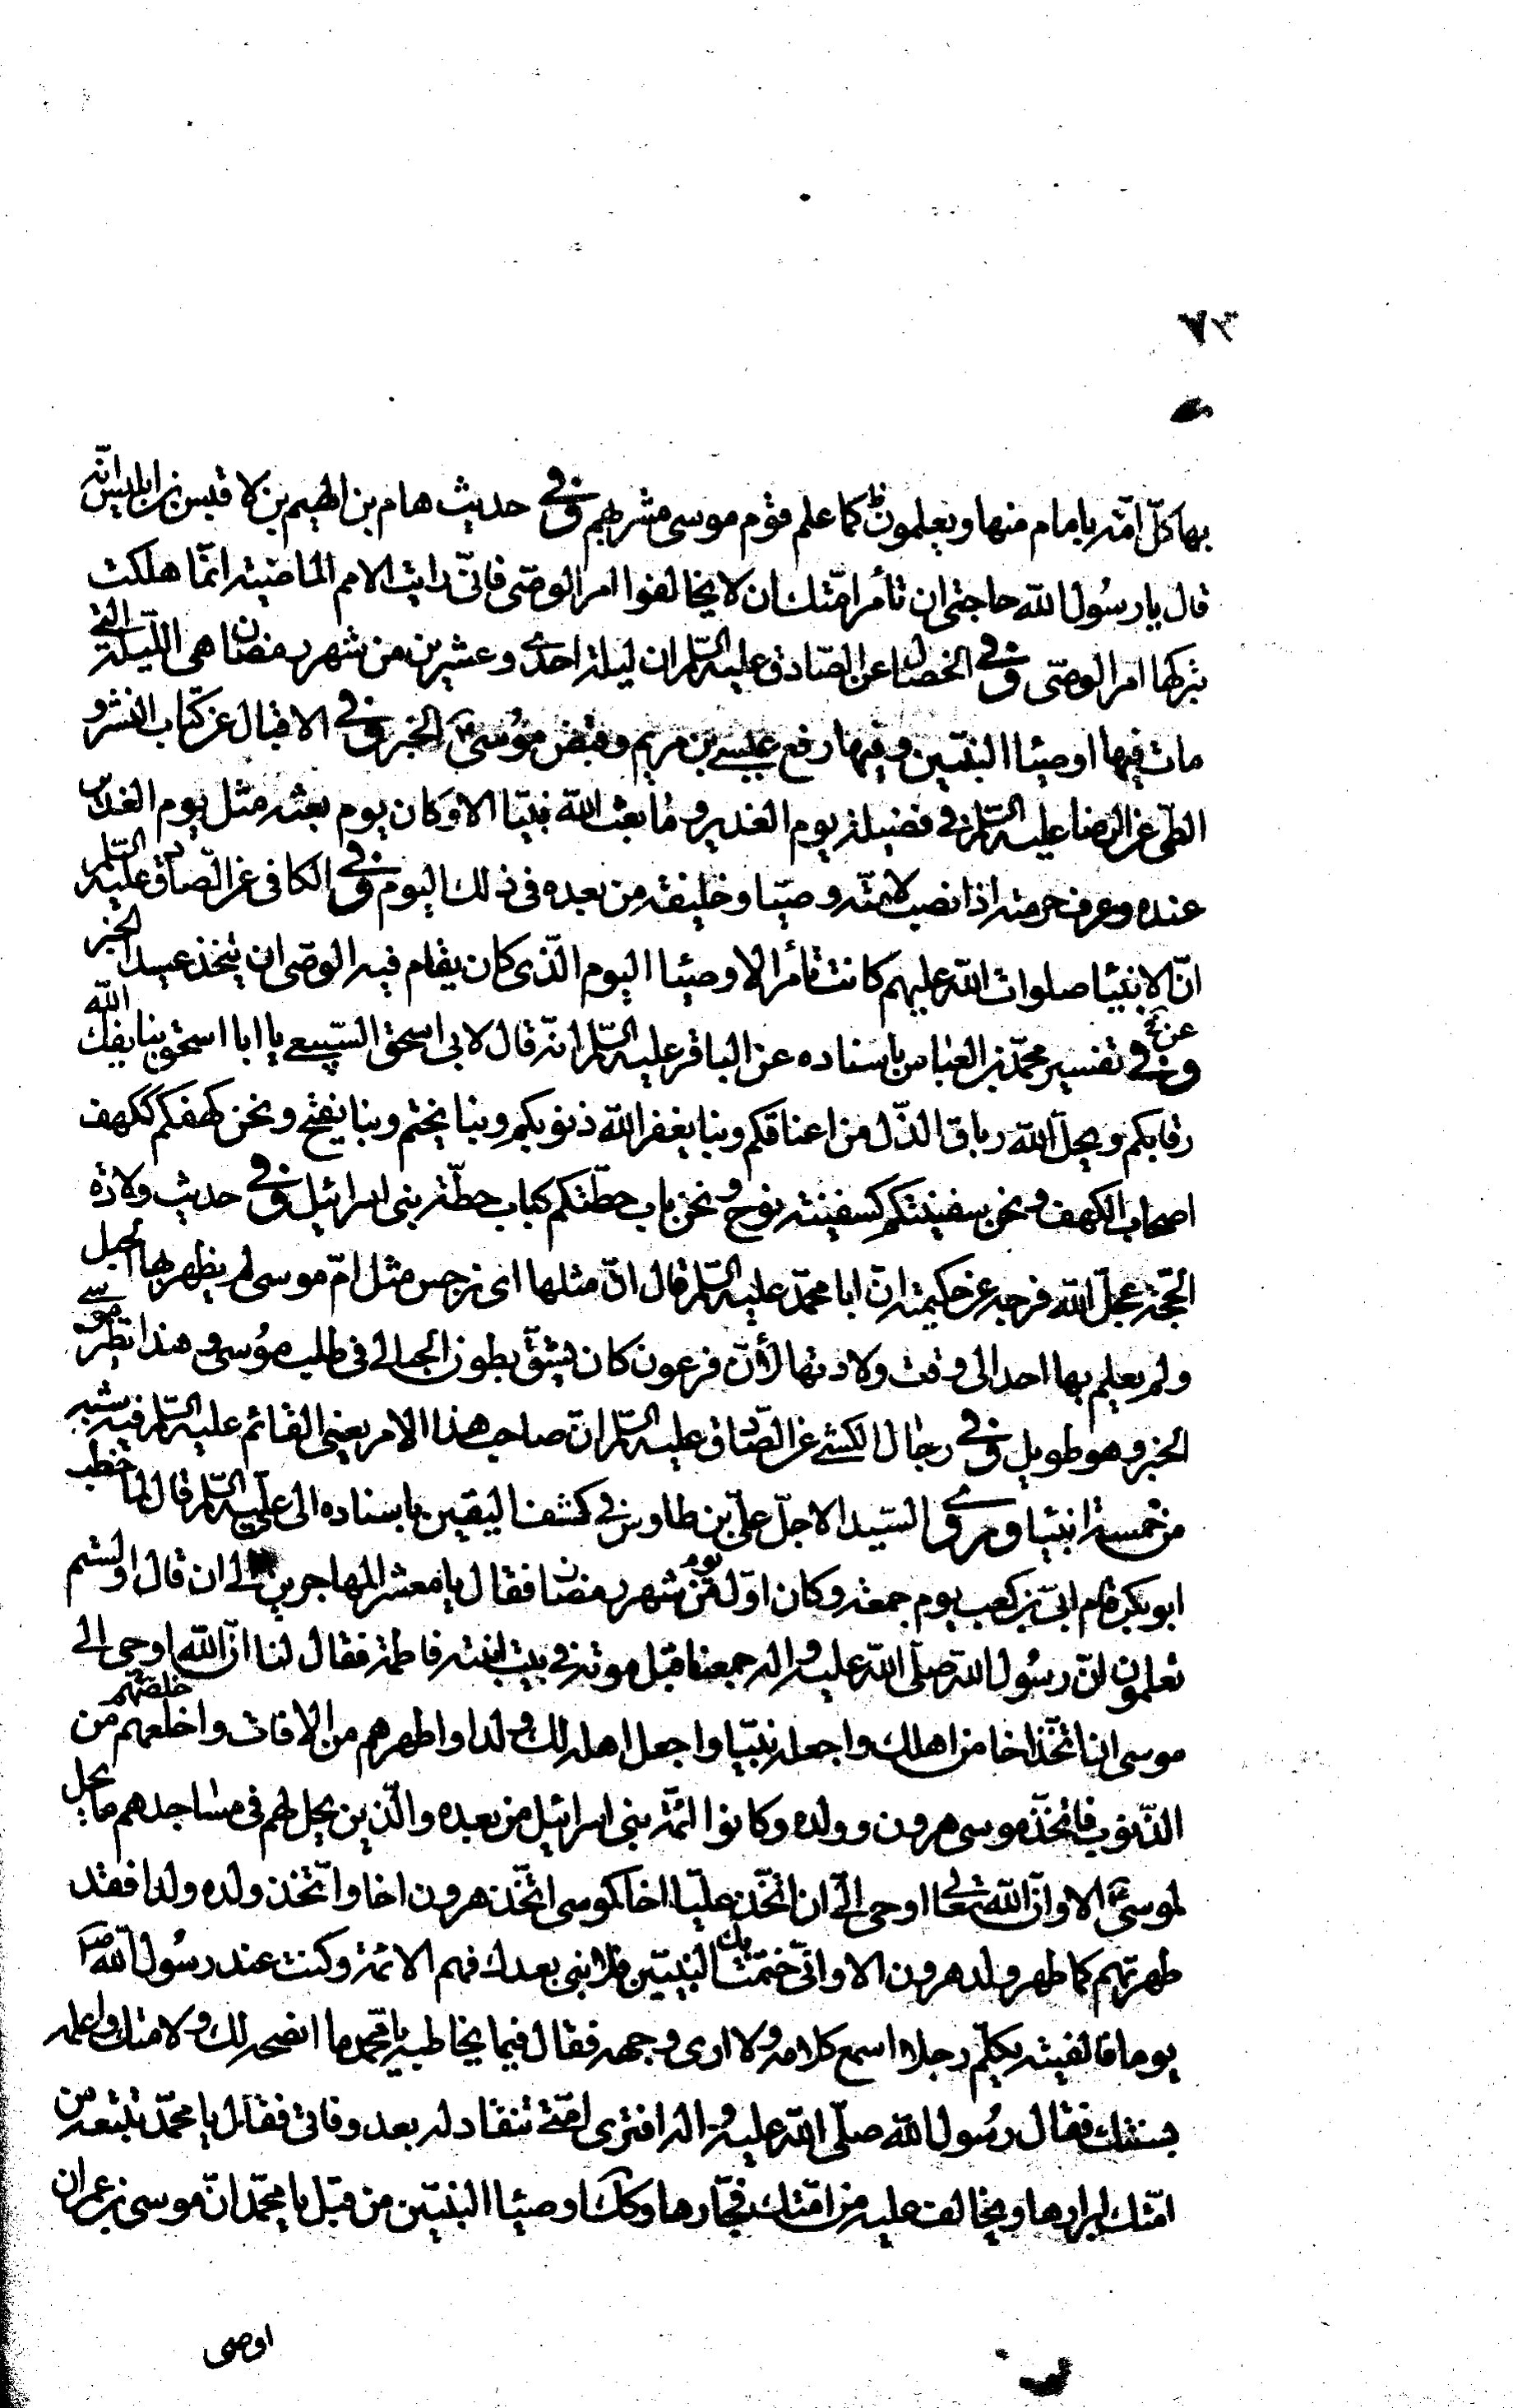 ٧٣
بها كلّ امّة بامام منها ويعلمون كما علم قوم موسى مشربهم وفي حديث هام بن الهيم بن لاقيس بن ابليس انّه
قال يا رسُول الله حاجتى ان تأمر امّتك ان لا يخالفوا امر الوصّى فانّى رايت الامم الماضية انّما هلكت
بتركها امر الوصّى وفي الخصال عن الصّادق عليه السّلم ان ليلة احدى وعشرين من شهر رمضان هى اللّيلة التي
مات فيها اوصيٰا النبيّين وفيها رفع عيسى بن مريم وقبض موُسىٰ الخبر وفي الاقبال عن كتاب النشر و
الطّى عن الرضا عليه السّلم في فضيلة يوم الغدير وما بعث الله نبيّا الا وكان يوم بعثه مثل يوم الغدير
عنده وعرف حرمته اذا نصب لامّته وصيّا وخليفة من بعده فى ذلك اليوم وفي الكافى عن الصّادق عليه السّلم
انّ الانبيٰا صلوات الله عليهم كانت تأمر الاوصيٰا اليوم الّذى كان يقام فيه الوصّى ان يتّخذ عيدا الخبر
وعن في تفسير محمّد بن العبّاس باسناده عن الباقر عليه السّلم انّه قال لابى اسحق السّبيعى يا ابا اسحق بنا يفكّ الله
رقابكم ويحلّ الله رباق الذّل من اعناقكم وبنا يغفر الله ذنوبكم وبنا يختم وبنا يفتح ونحن كهفكم ككهف
اصحاب الكهف ونحن سفينتكم كسفينة نوح ونحن باب حطّتكم كباب حطّة بنى اسرائيل وفي حديث ولادة
الحجّة عجّل الله فرجه عن حكيمة انّ ابا محمّد عليه السّلم قال انّ مثلها اى نرجس مثل امّ موسى لم يظهر بها الحبل
ولم يعلم بها احد الى وقت ولادتها لأنّ فرعون كان يشقّ بطون الحبالى فى طلب موُسى وهذا نظير موسى
الخبر وهو طويل وفي رجٰال الكشّى عن الصّادق عليه السّلم انّ صاحب هذا الامر يعنى القائم عليه السّلم فيه شبه
من خمسة انبيٰا وروى السّيد الاجلّ علىّ بن طاوس في كشف اليقين باسناده الى علىّ عليه السّلم قال لمّا خطب
ابو بكر قام ابىّ بن كعب يوم جمعة وكان اوّل يوم من شهر رمضان فقال يا معشر المهاجرين الى ان قال اولستم
تعلمون انّ رسُول الله صلّى الله عليه واله جمعنا قبل موته في بيت ابنته فاطمة فقال لنا انّ الله اوحى الى
موسى ان اتّخذ اخا من اهلك واجعله نبيّا واجعل اهله لك ولدا واطهرهم من الافات واخلعهم خلصتهم من
الذّنوب فاتّخذ موسى هرون وولده وكانوا ائمّة بنى اسرائيل من بعده والّذين يحلّ لهم فى مساجدهم ما يحلّ
لموسىٰ الا وانّ الله تعالى اوحى الىّ ان اتّخذ عليّا اخا كموسى اتّخذ هرون اخا واتّخذ ولده ولدا فقد
طهرتهم كما طهر ولد هرون الا وانّى ختمت بك النبيّين فلا نبى بعدك فهم الائمّة وكنت عند رسُول الله
يوما فالفيته يكلّم رجلا اسمع كلامه ولا ارى وجهه فقال فيما يخاطبه يا محمّد ما انصحه لك ولامتك واعلمه
بسنتك فقال رسُول الله صلّى الله عليه واله افترى امّتى تنقاد له بعد وفاتى فقال يا محمّد تتبعه من
امّتك ابرارها ويخالف عليه من امّتك فجّارها وكذلك اوصيٰا النبيّين من قبل يا محمّد انّ موسى بن عمران
اوصى